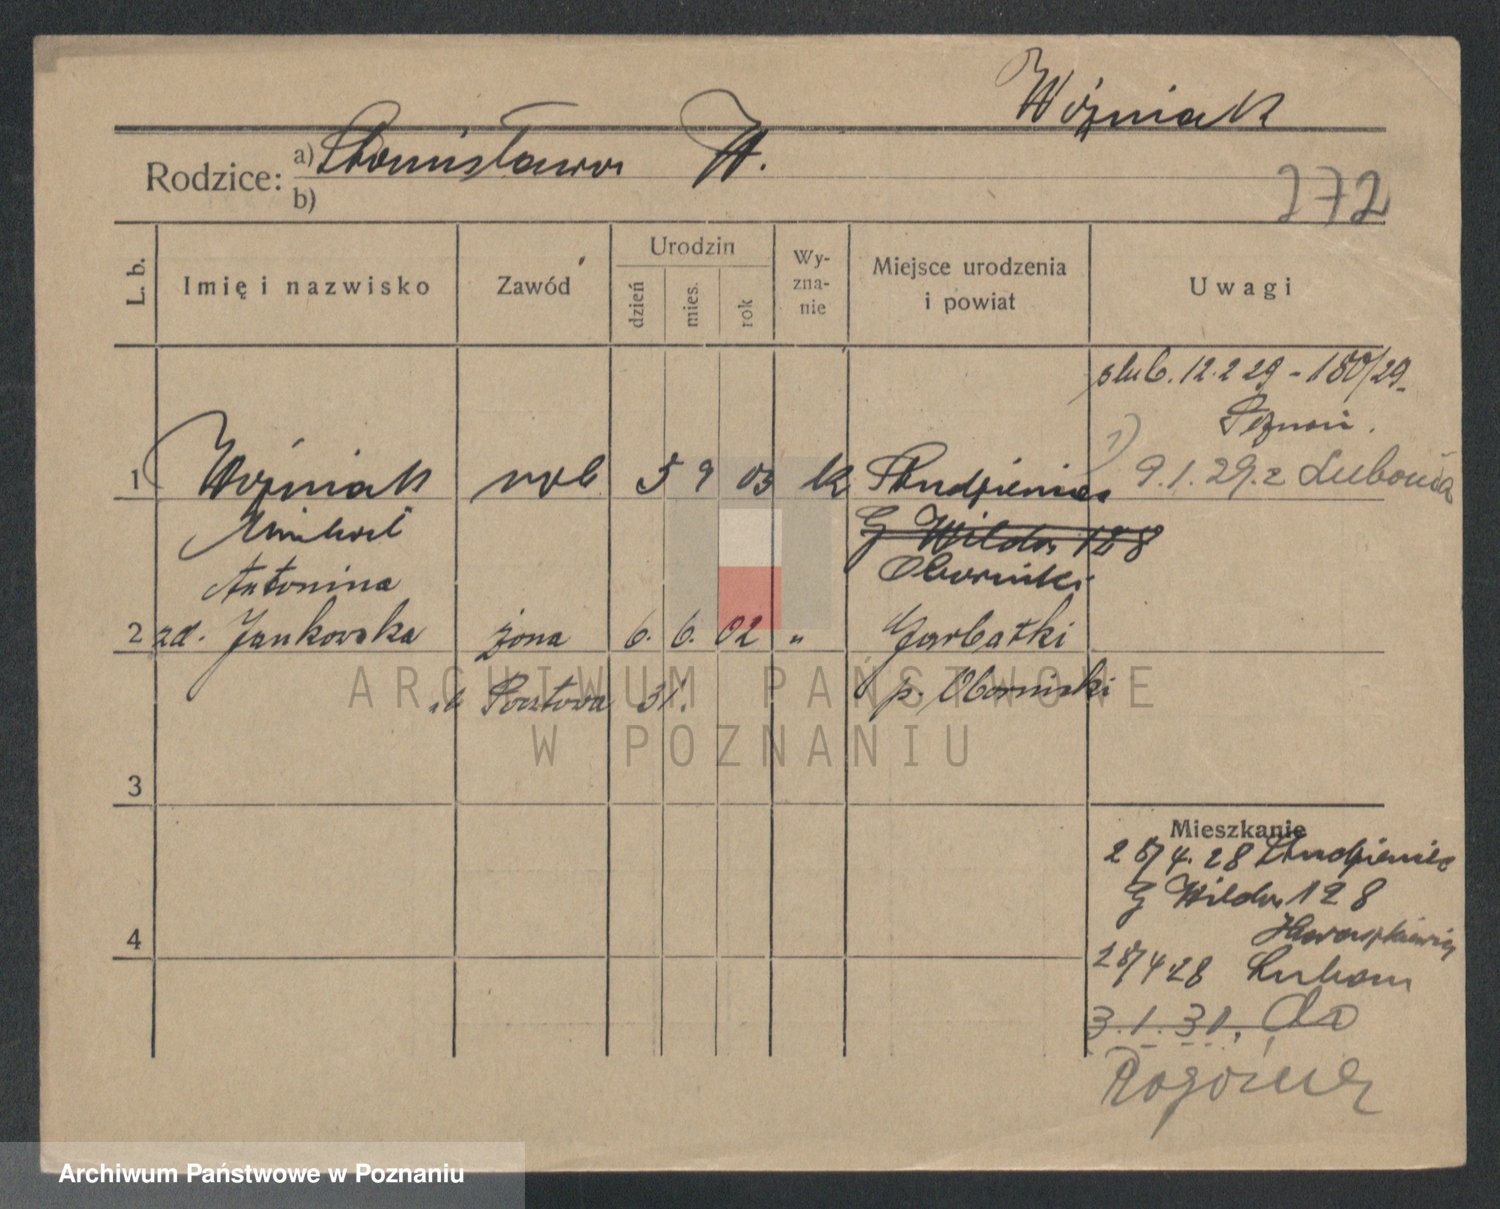 Woźniak
Rodzice: a) Stanisława W.
b)
272
L. b.
Imię i nazwisko
Zawód
Urodzin
dzień
mies.
rok
Wy-
zna-
nie
Miejsce urodzenia
i powiat
Uwagi
ślub. 12.2 29 - 180/29.
Poznań.
1)
1 Woźniak rob 5 9 03 k Studzieniec 9.1.29. z Lubonia
Michał
G Wilda 128
Antonina
Oborniki
2 zd. Jankowska żona 6. 6. 02 " Garbatki
Pocztowa 31.
p. Oborniki
ARCHIWUM PAŃSTWOWE
W POZNANIU
3
Mieszkanie
28/4.28 Studzieniec
G Wilda 128
4
28/4 28 Luboń
3.1.31. do
Rogoźna
Archiwum Państwowe w Poznaniu